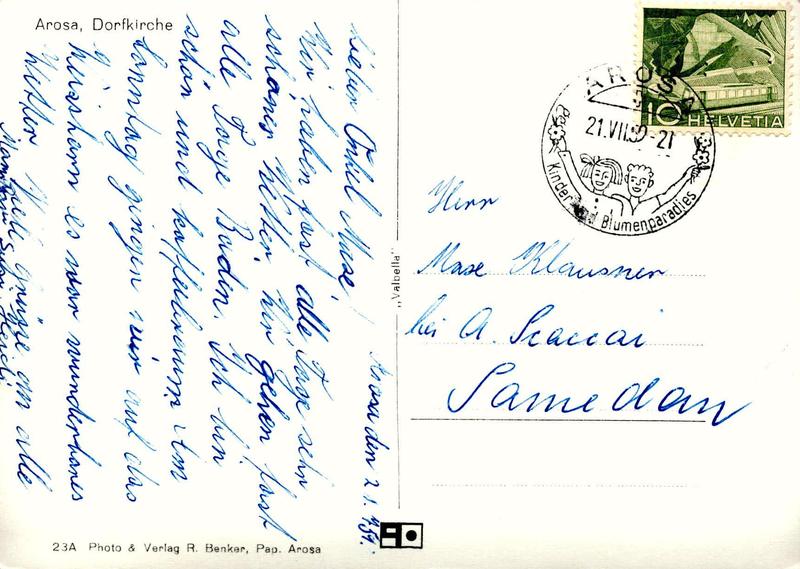 Arosa, Dorfkirche
Arosa den 21.7.59.
Lieber Onkel Maxe!
Wir haben fast alle Tage sehr
schönes Wetter. Wir gehen fast
alle Tage Baden. Ich bin
schön und kaffeebraun. Am
Sonntag gingen wir auf das
Weisshorn es war wunderbares
Wetter. Viele Grüsse an alle
Heidi
23A Photo & Verlag R. Benker, Pap. Arosa
„Valbella"
HELVETIA
10
AROSA
21.VII.59-21
Kinder und Blumenparadies
Herr
Maxe Klausner
bei A. Scaccai
Samedan